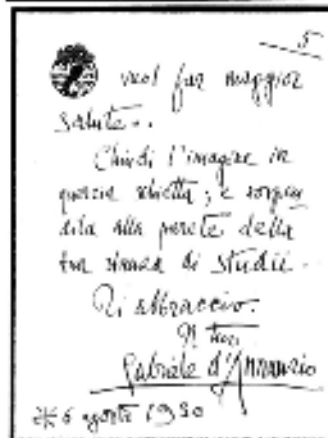 5
vuol far maggior
salute..
Chiudi l'imagine in
quercia schietta; e
alla parete della
tua stanza di studii.
Ti abbraccio.
Il tuo
Gabriele d'Annunzio
6 agosto 1930